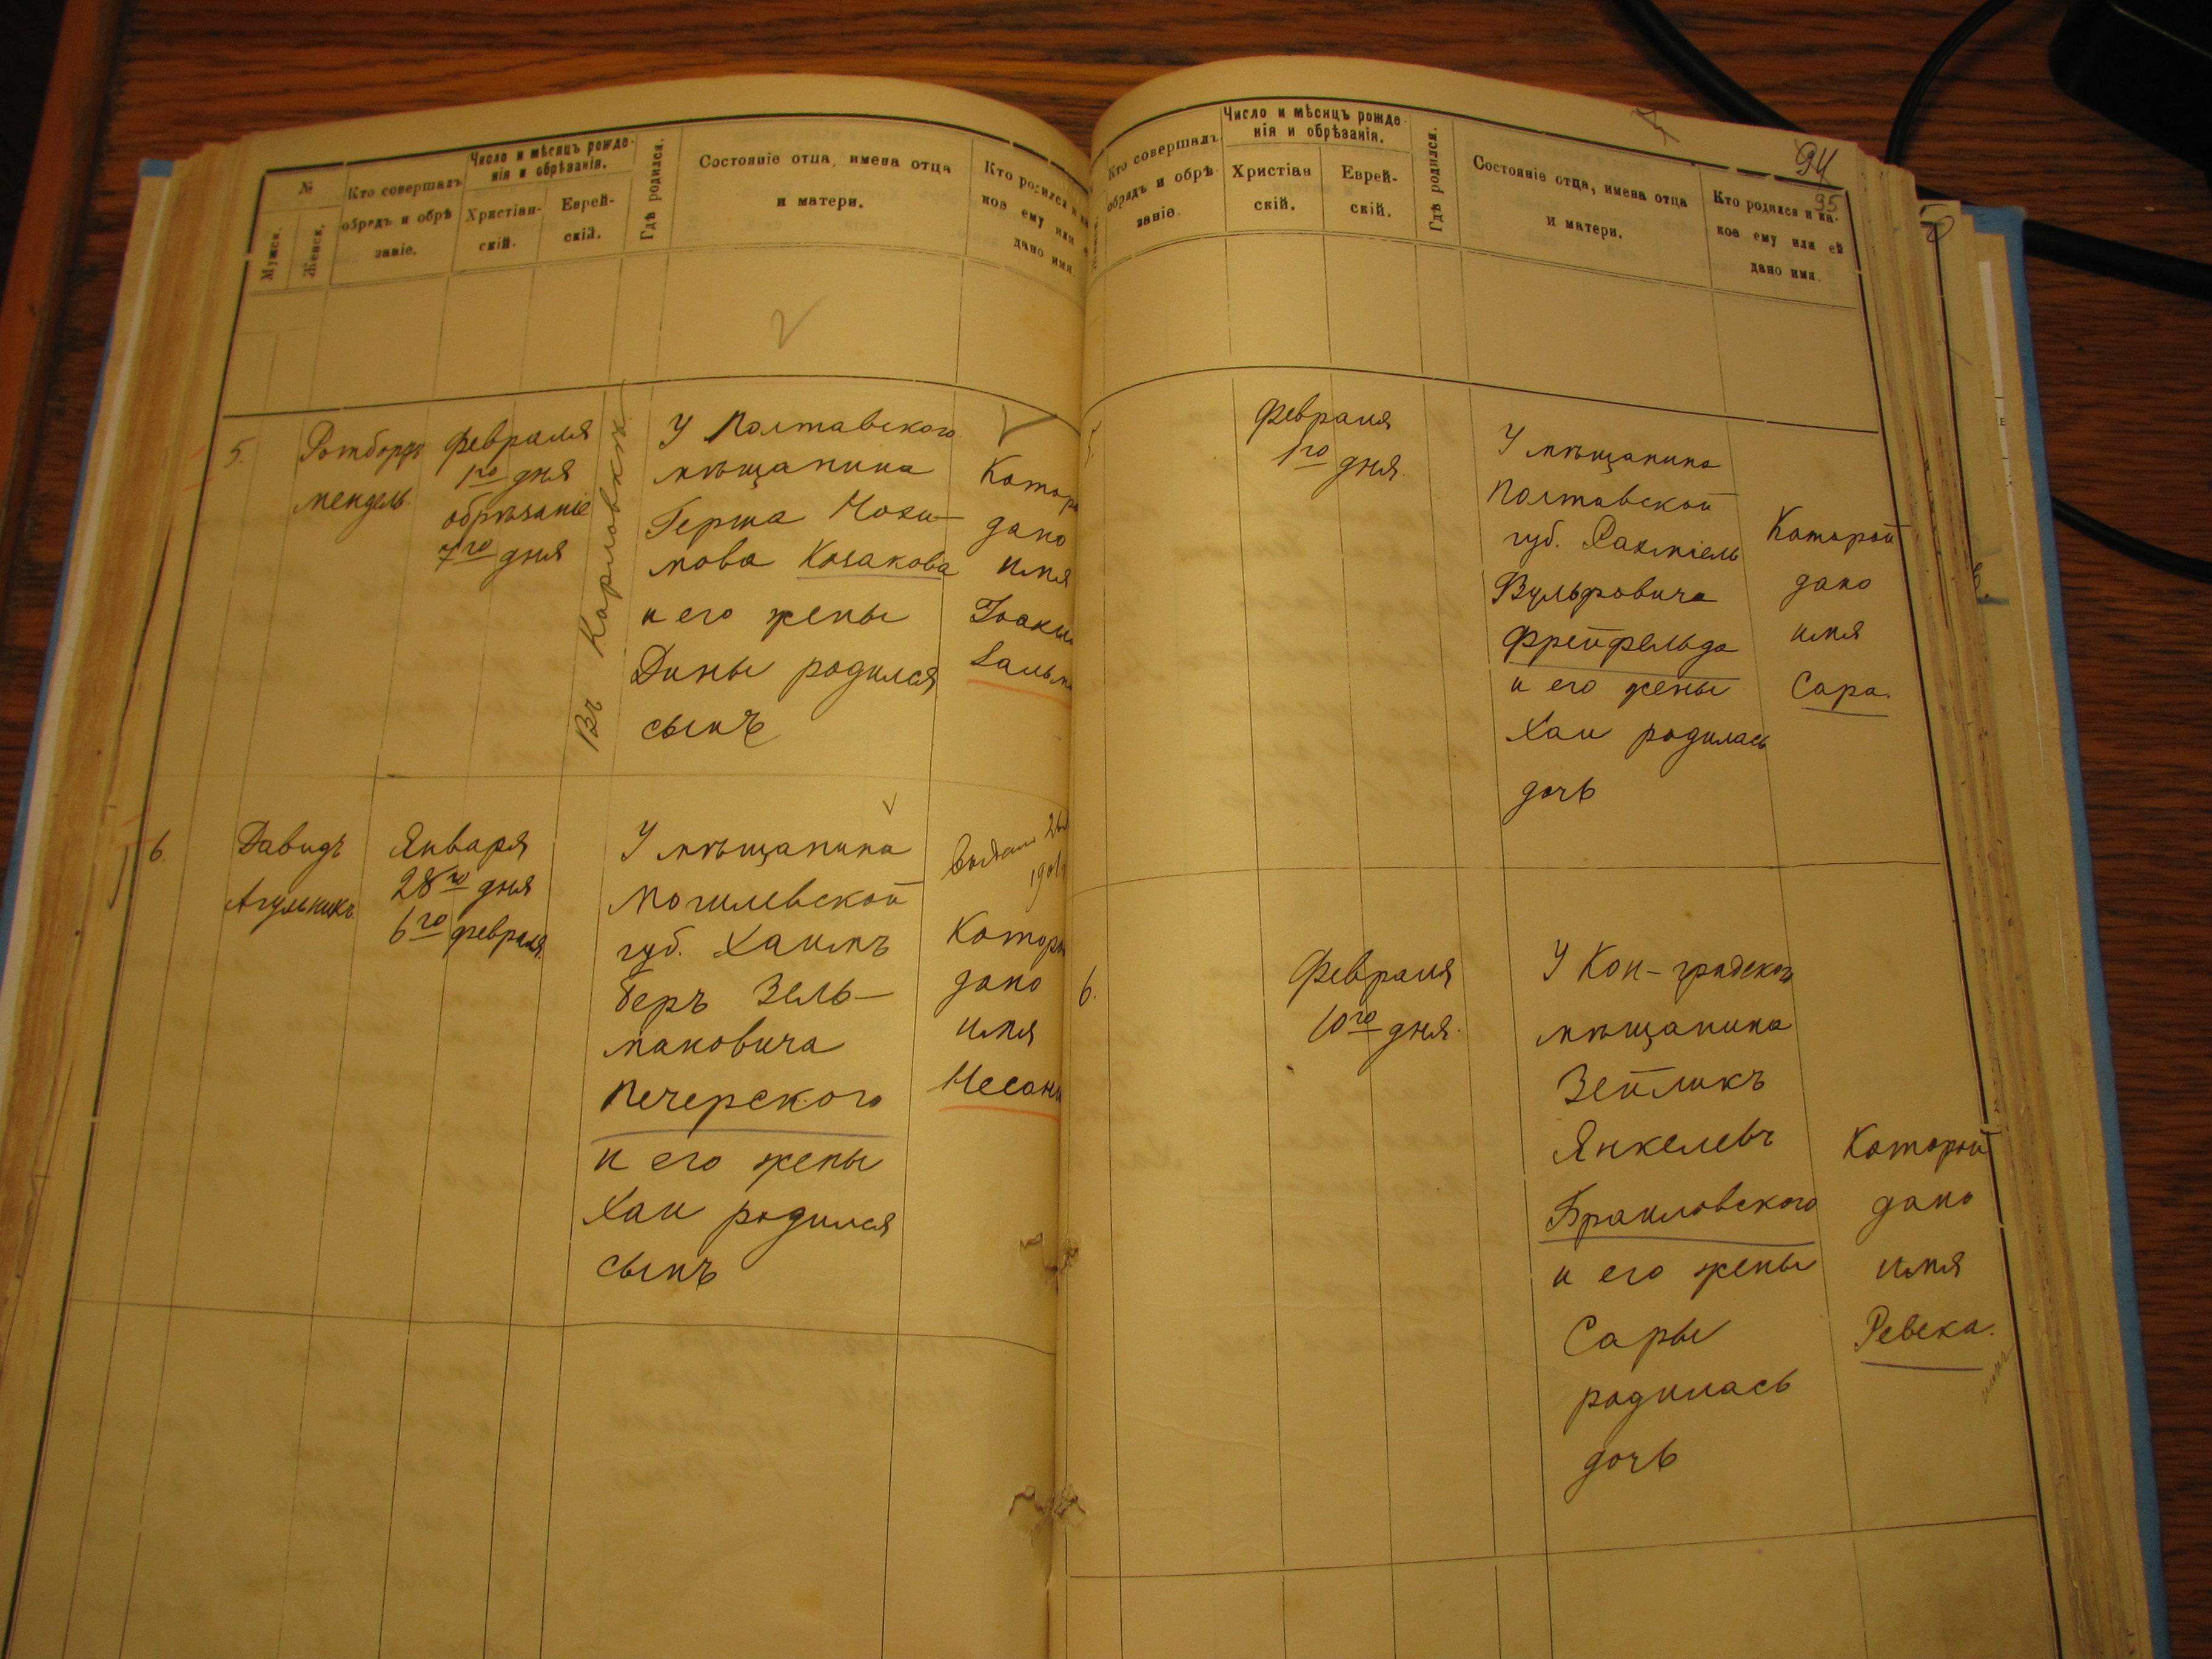 №
Мужск.
Женск.
Кто совершалъ
обрядъ и обрѣ
заніе.
Число и мѣсяцъ рожде-
нія и обрѣзанія.
Христіан-
скій.
Еврей-
скій.
Гдѣ родился.
Состояніе отца, имена отца
и матери.
Кто родился и
кое ему или
дано имя.
5.
мендель
Февраля
1го дня
обрѣзаніе
7го дня
Въ Карловкѣ
У Полтавскаго
мѣщанина
Герша
мова Козакова
и его жены
Дины родился
сынъ
дано
имя
6.
Давидъ
Агульникъ
Января
28го дня
6го февраля
У мѣщанина
Могилевской
губ. Хаимъ
Беръ Зель-
мановича
Печерского
и его жены
Хаи родился
сынъ
дано
имя
94
95
Кто совершалъ
обрядъ и обрѣ
заніе.
Число и мѣсяцъ рожде-
нія и обрѣзанія.
Христіан
скій.
Еврей-
скій.
Гдѣ родился.
Состояніе отца, имена отца
и матери.
Кто родился и ка-
кое ему или ей
дано имя.
5.
Февраля
1го дня.
У мѣщанина
Полтавской
губ.
Вульфовича
Фрейфельда
и его жены
Хаи родилась
дочь
Которой
дано
имя
Сара.
6.
Февраля
10го дня.
У Кон-градскаго
мѣщанина
Зейликъ
Янкелевъ
Браиловского
и его жены
Сары
родилась
дочь
Которой
дано
имя
Ревека.